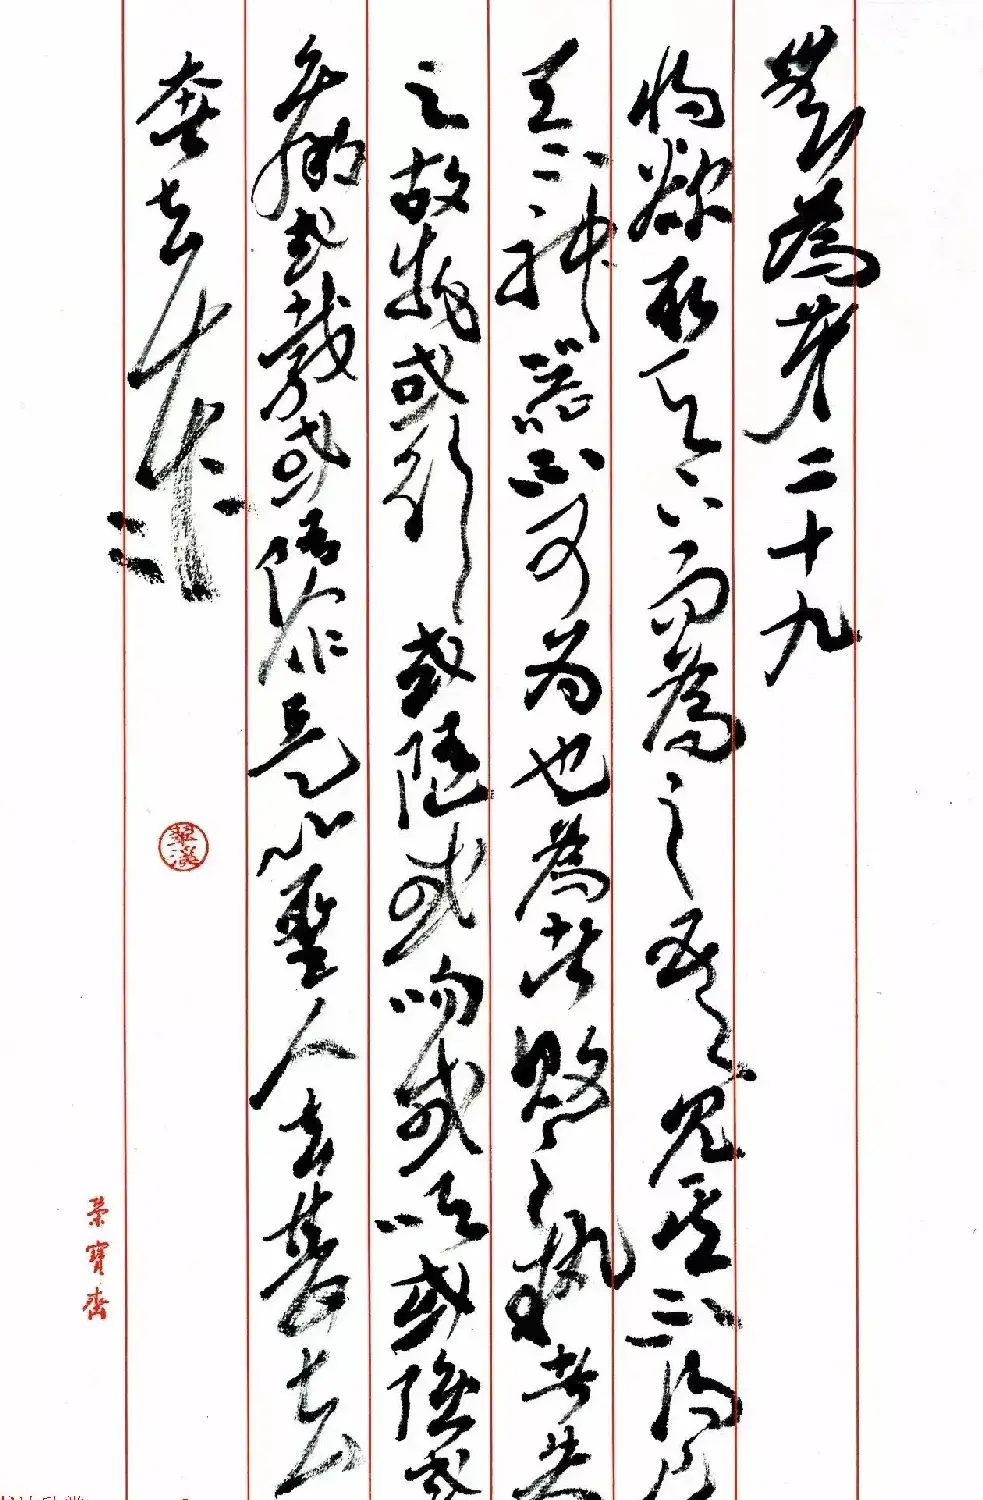 無為第二十九
將欲取天下而為之吾見其不得已
天下神器不可為也為者敗之執者失
之故物或行或隨或呴或吹或強或
羸或載或隳是以聖人去甚去
奢去泰
榮寶齋